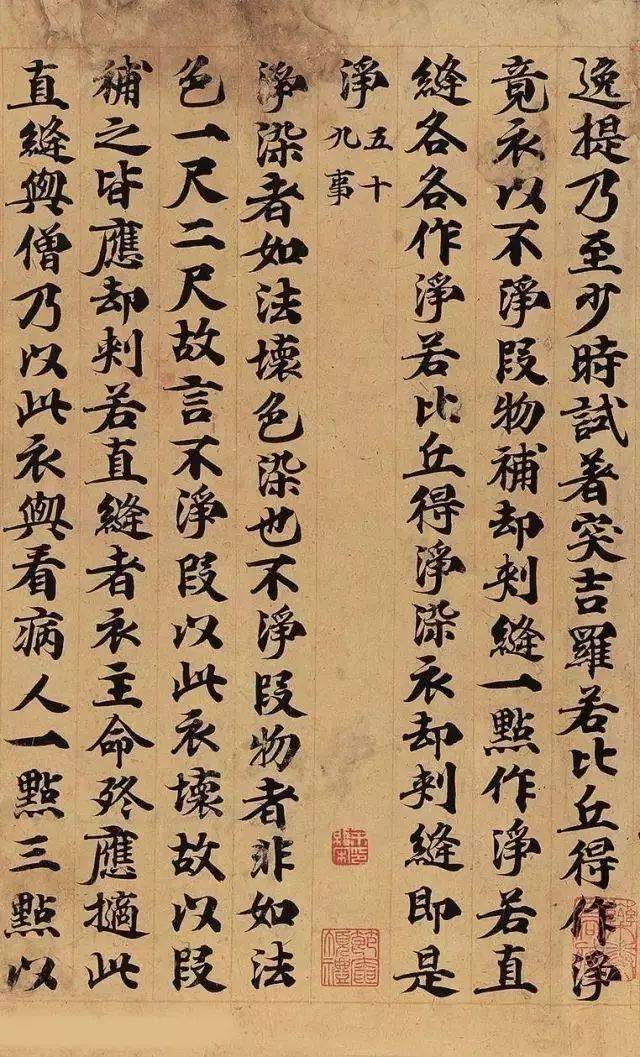 逸提乃至少時試著突吉羅若比丘得作淨
竟衣以不淨段物補却刺縫一點作淨若直
縫各各作淨若比丘得淨染衣却刺縫即是
淨五十九事
淨染者如法壞色染也不淨段物者非如法
色一尺二尺故言不淨段以此衣壞故以段
補之皆應却刺若直縫者衣主命終應擿此
直縫與僧乃以此衣與看病人一點三點以